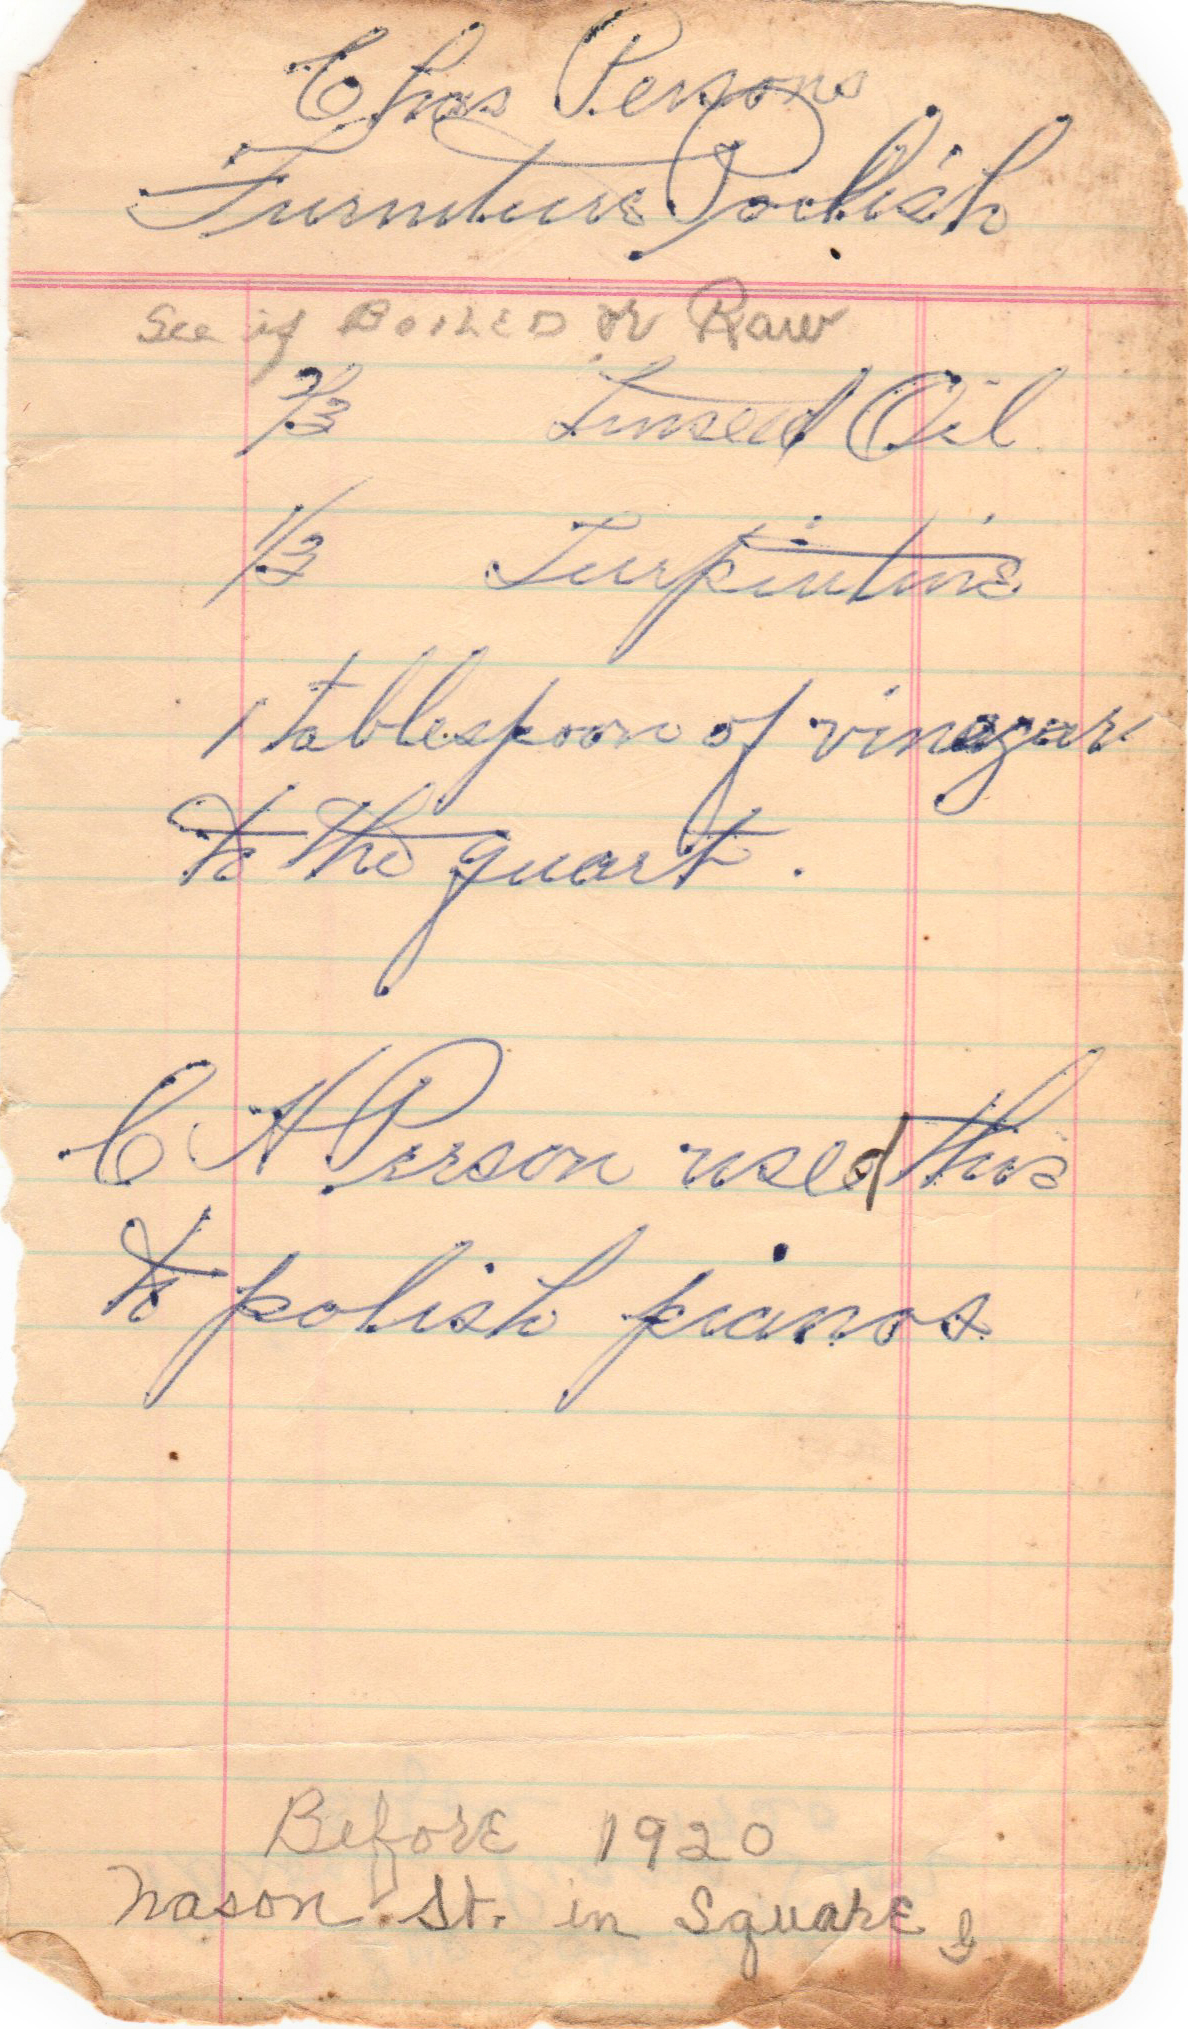 Chas Persons
Furniture Poolish
See if BOILED or Raw
2/3 Linseed Oil
1/3 Turpintine
1 tablespoon of vinegar
to the quart.
C H Person used this
to polish pianos
Before 1920
Nason St. in Square